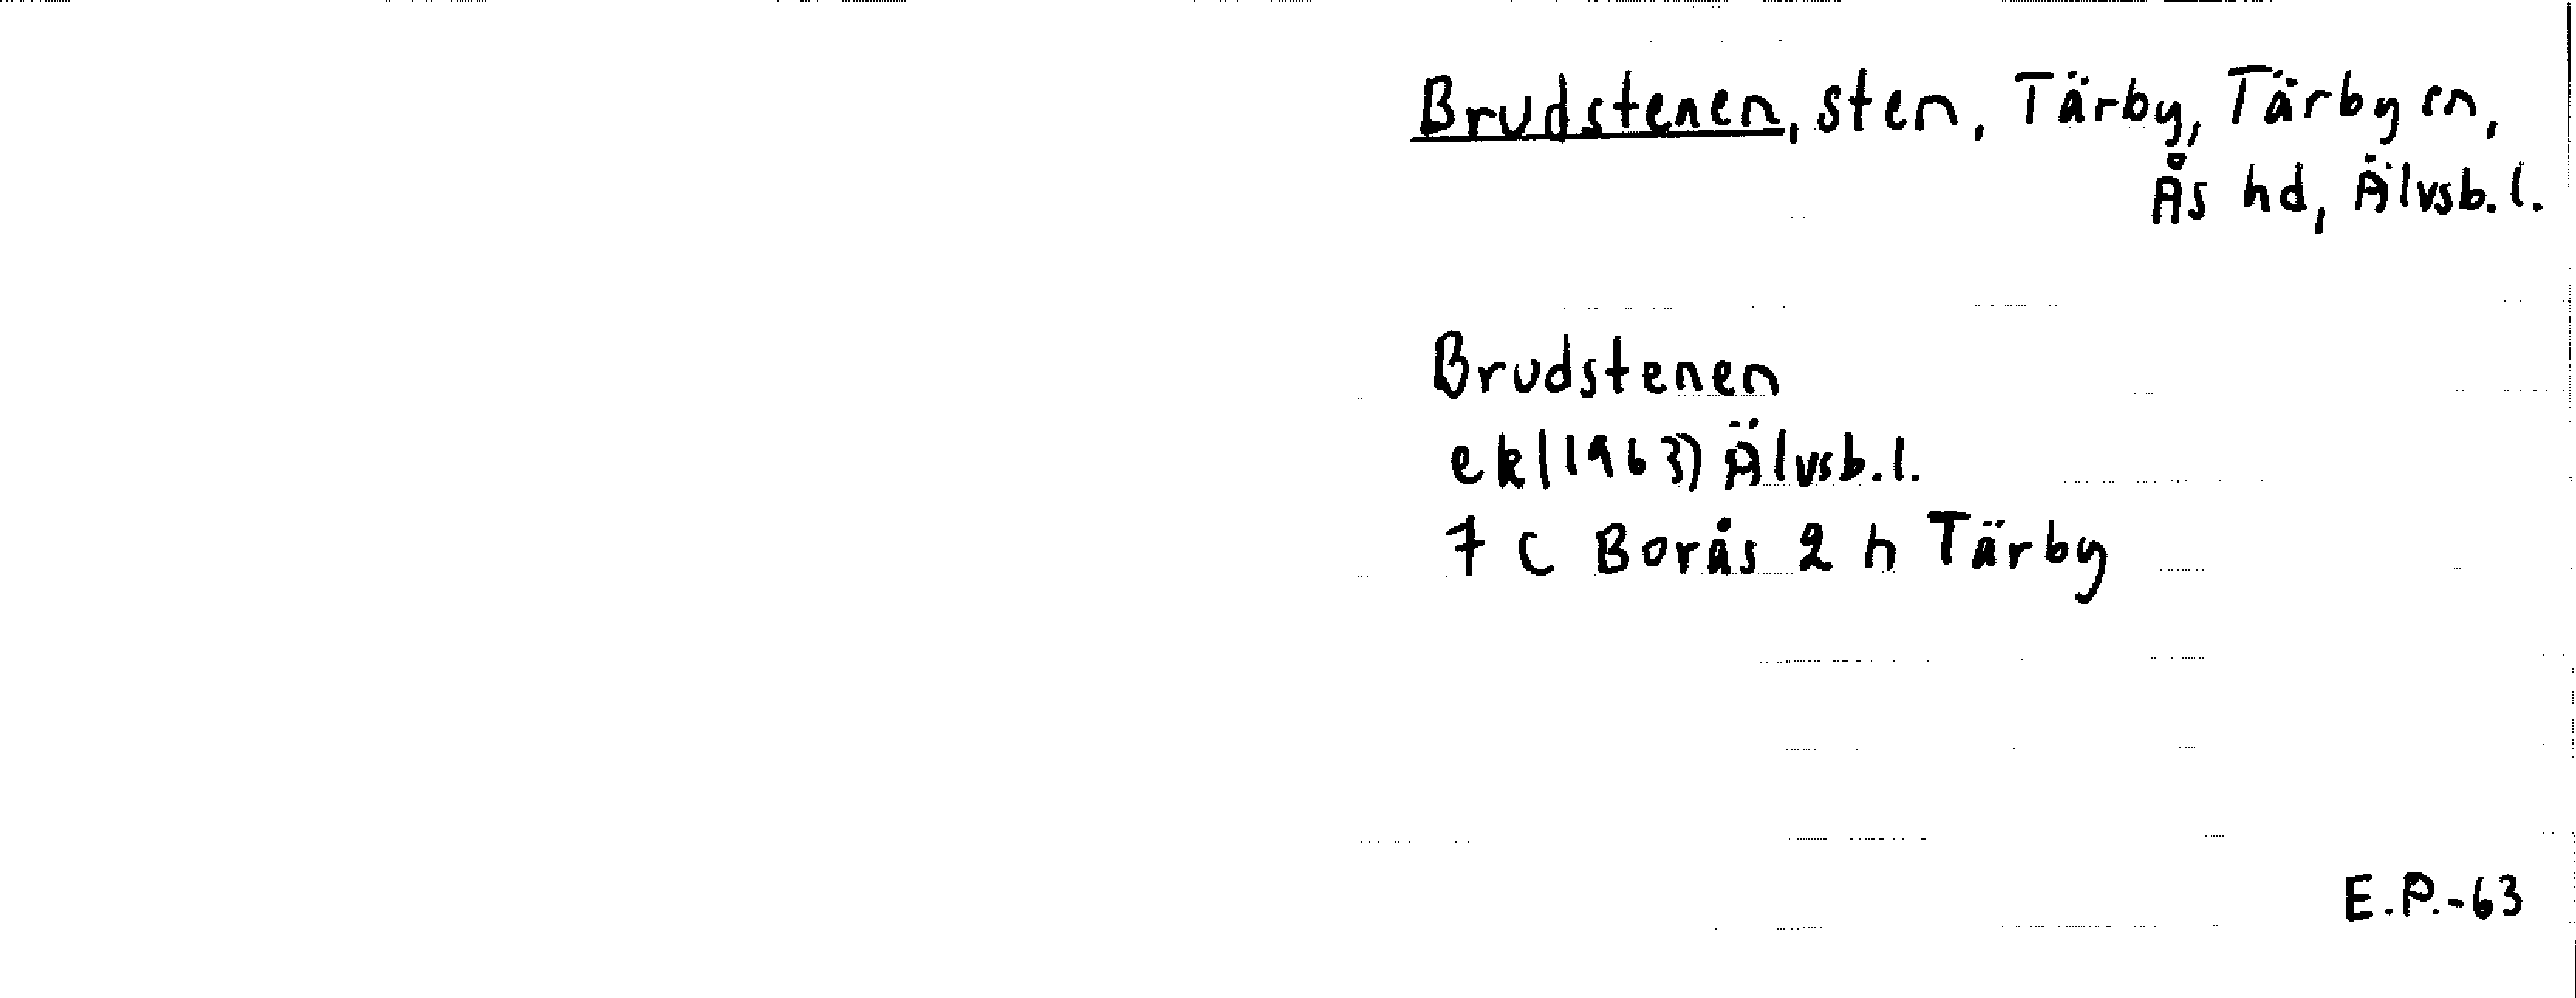 Brudstenen, sten, Tärby, Tärby sn,
Ås hd, Älvsb. l.
Brudstenen
ekl1963) Älvsb. l.
7 C Borås 2 h Tärby
E.P.-63